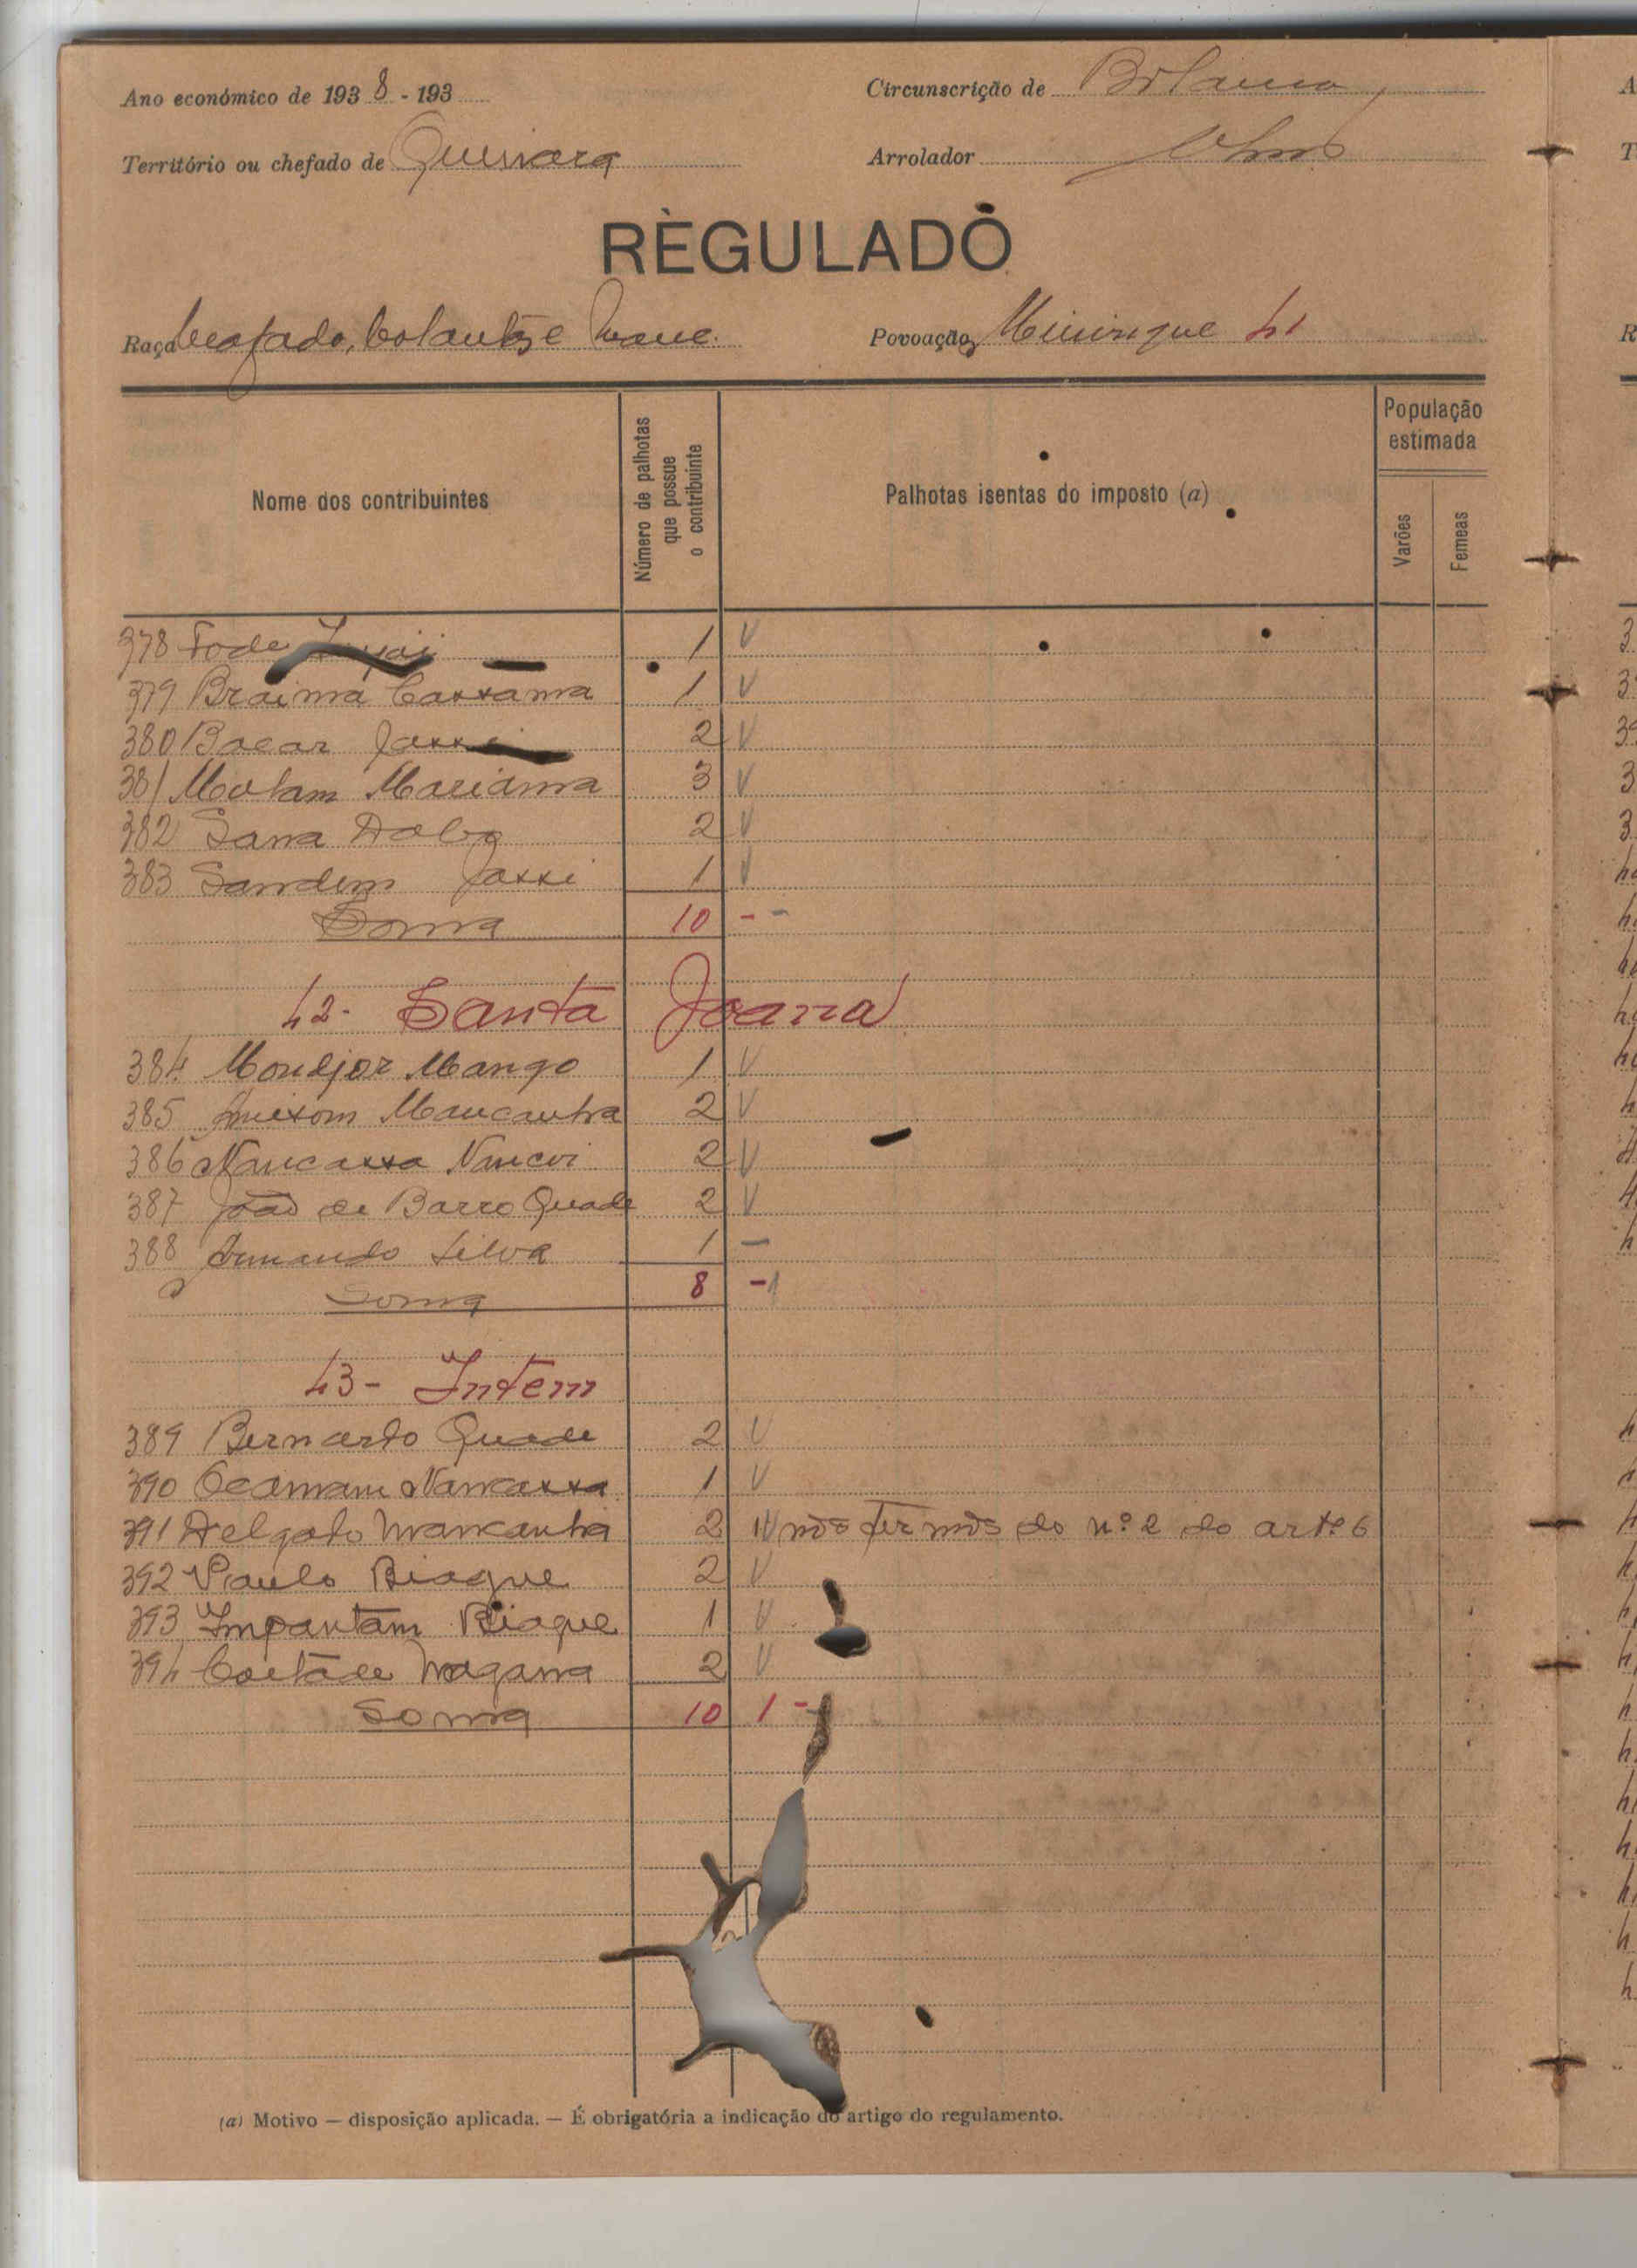 Ano económico de 193 8 - 193
Circunscrição de Bolama
Território ou chefado de Quinara
Arrolador
REGULADO
Raça Beafada, e
Povoação 41
Nome dos contribuintes
Número de palhotas que possue o contribuinte
Palhotas isentas do imposto (a)
População estimada
Varões
Femeas
378 Fode 1 V
379 Braima Cassama 1 V
380 Bacar Jassi 2 V
381 Malam Mariama 3 V
382 Sana Dabo 2 V
383 Sandem Jassi 1 V
Soma 10 - -
42- Santa Joana
384 Mondjor Mango 1 V
385 Mancanha 2 V
386 Nancassa Nancoi 2 V
387 João de Barro Quade 2 V
388 Armando Silva 1 -
Soma 8 - 1
43- Intem
389 Bernardo Quade 2 V
390 Ocamam Nancassa 1 V
391 Delgado Mancanha 2 1 V nos termos do nº 2 do artº 6
392 Paulo Biaque 2 V
393 Impantam Biaque 1 V
394 Caetano Nagana 2 V
Soma 10 1 -
(a) Motivo — disposição aplicada. — É obrigatória a indicação do artigo do regulamento.